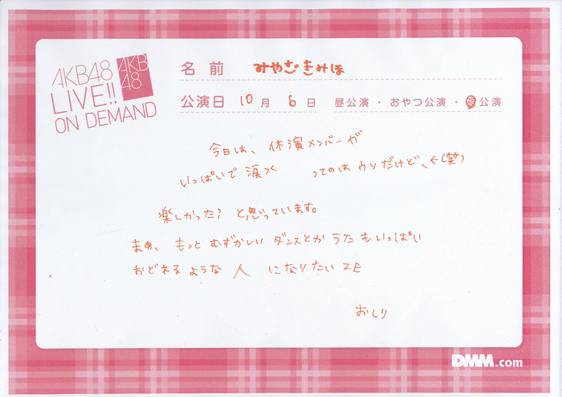 AKB48
LIVE!!
ON DEMAND
AKB
48
名前 みやざきみほ
公演日 10月 6日 昼公演・おやつ公演・夜公演
今日は、休演メンバーが
いっぱいで 涙つく ってのは ウソだけど、←(笑)
楽しかった? と思っています。
まぁ、もっと むずかしい ダンスとか うた も いっぱい
おどれる ような 人 に なりたい ZE
おしり
DMM.com